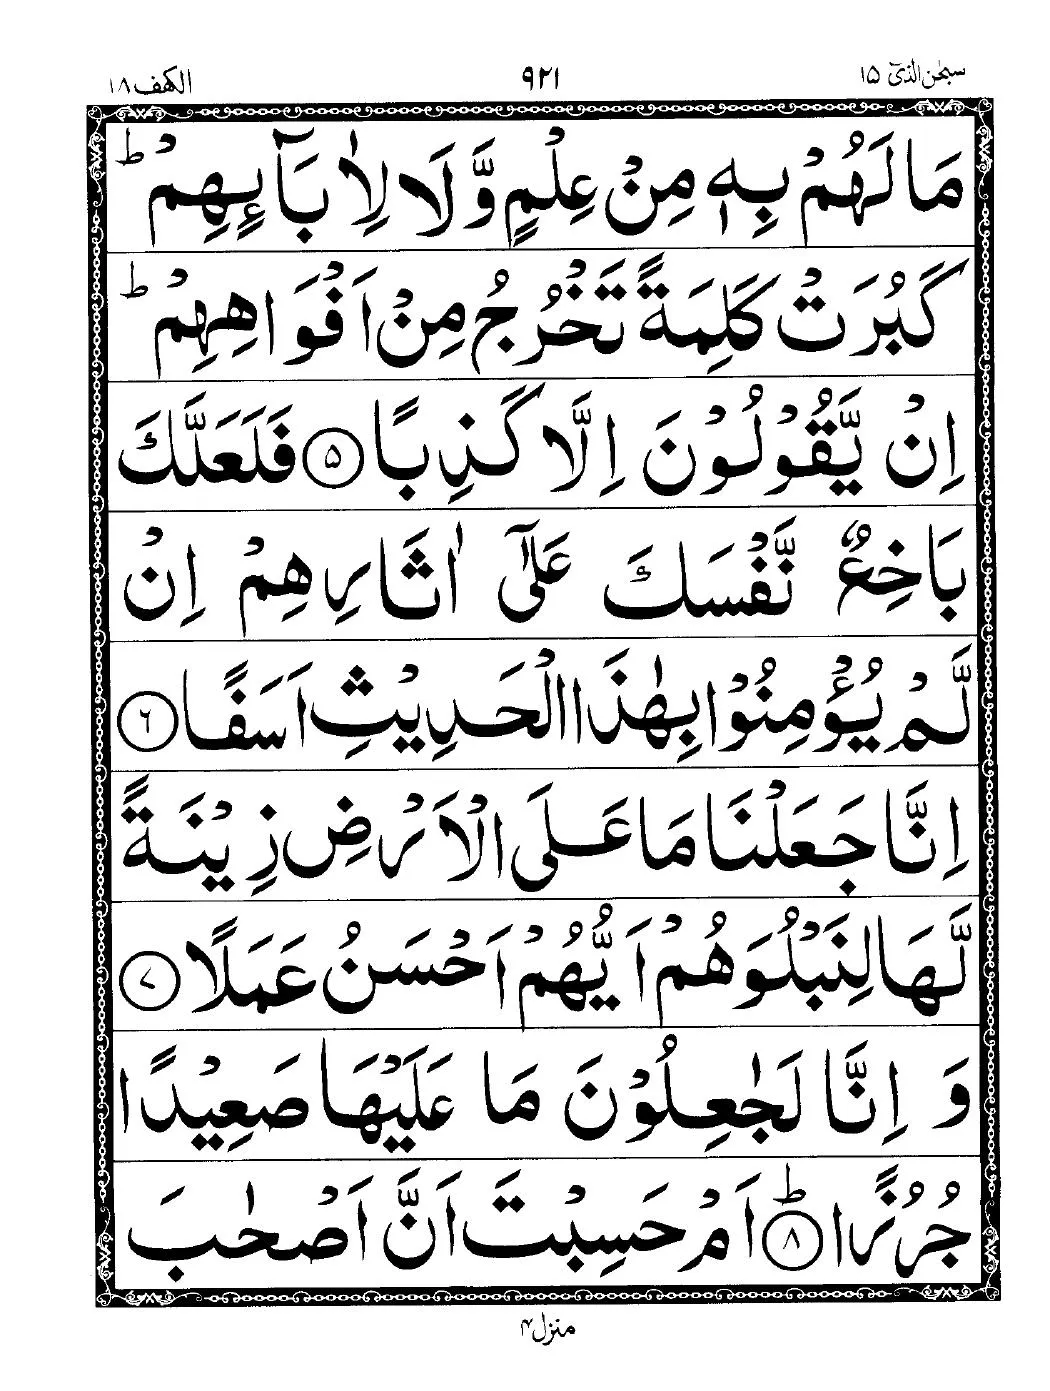 سبحٰن الذیٓ ۱۵
۹۲۱
الکهف ۱۸
مَا لَهُمْ بِهٖ مِنْ عِلْمٍ وَّلَا لِاٰبَآئِهِمْ ؕ
كَبُرَتْ كَلِمَةً تَخْرُجُ مِنْ اَفْوَاهِهِمْ ؕ
اِنْ يَّقُوْلُوْنَ اِلَّا كَذِبًا ۵ فَلَعَلَّكَ
بَاخِعٌ نَّفْسَكَ عَلٰٓى اٰثَارِهِمْ اِنْ
لَّمْ يُؤْمِنُوْا بِهٰذَا الْحَدِيْثِ اَسَفًا ۶
اِنَّا جَعَلْنَا مَا عَلَى الْاَرْضِ زِيْنَةً
لَّهَا لِنَبْلُوَهُمْ اَيُّهُمْ اَحْسَنُ عَمَلًا ۷
وَ اِنَّا لَجٰعِلُوْنَ مَا عَلَيْهَا صَعِيْدًا
جُرُزًا ؕ ۸ اَمْ حَسِبْتَ اَنَّ اَصْحٰبَ
منزل ۴